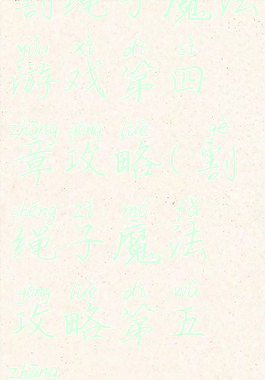 割绳子魔法
yóu xì dì sì
游戏第四
zhāng gōng lüè gē
章攻略(割
shéng zi mó fǎ
绳子魔法
gōng lüè dì wǔ
攻略第五
zhāng